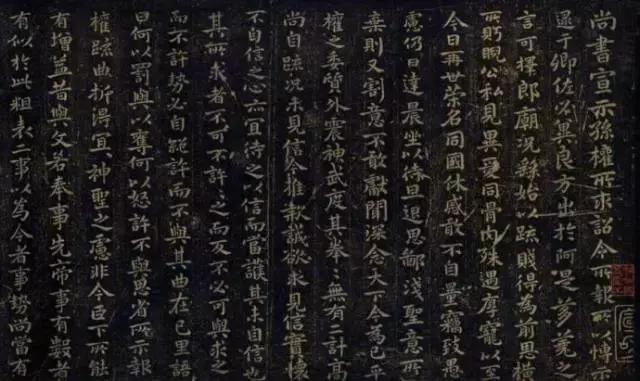 尚書宣示孫權所求詔令所報所以博示
逮于卿佐必冀良方出於阿是芻蕘之
言可擇郎廟況繇始以疏賤得為前恩橫
所盱睨公私見異愛同骨肉殊遇厚寵以至
今日再世榮名同國休慼敢不自量竊致愚
慮仍日達晨坐以待旦退思鄙淺聖意所
棄則又割意不敢獻聞深念天下今為已平
權之委質外震神武度其拳拳無有二計高
尚自疏況未見信今推款誠欲求見信實懷
不自信之心亦宜待之以信而當護其未自信也
其所求者不可不許許之而反不必可與求之
而不許勢必自絕許而不與其曲在己里語
曰何以罰與以奪何以怒許不與思省所示報
權疏曲折得宜宜神聖之慮非今臣下所能
有增益昔與文若奉事先帝事有數者
有似於此粗表二事以為今者事勢尚當有